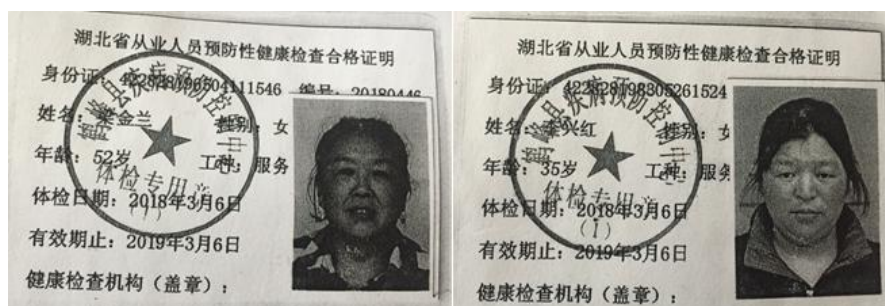 湖北省从业人员预防性健康检查合格证明
身份证: 编号: 20180446
姓名: 金兰 性别: 女
年龄: 52岁 工种: 服务
体检日期: 2018年3月6日
有效期止: 2019年3月6日
健康检查机构（盖章）:
鹤峰县疾病预防控制中心
体检专用章
(1)
湖北省从业人员预防性健康检查合格证明
身份证:
姓名: 兴红 性别: 女
年龄: 35岁 工种: 服务
体检日期: 2018年3月6日
有效期止: 2019年3月6日
健康检查机构（盖章）:
鹤峰县疾病预防控制中心
体检专用章
(1)